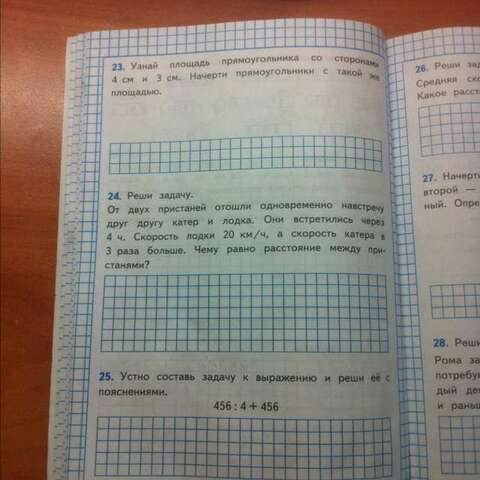 23. Узнай площадь прямоугольника со сторонами
4 см и 3 см. Начерти прямоугольники с такой же
площадью.
24. Реши задачу.
От двух пристаней отошли одновременно навстречу
друг другу катер и лодка. Они встретились через
4 ч. Скорость лодки 20 км/ч, а скорость катера в
3 раза больше. Чему равно расстояние между при-
станями?
25. Устно составь задачу к выражению и реши её с
пояснениями.
456 : 4 + 456
26. Реши зад
Средняя ско
Какое расст
27. Начерти
второй —
ный. Опре
28. Реши
Рома за
потребу
дый де
и раньш